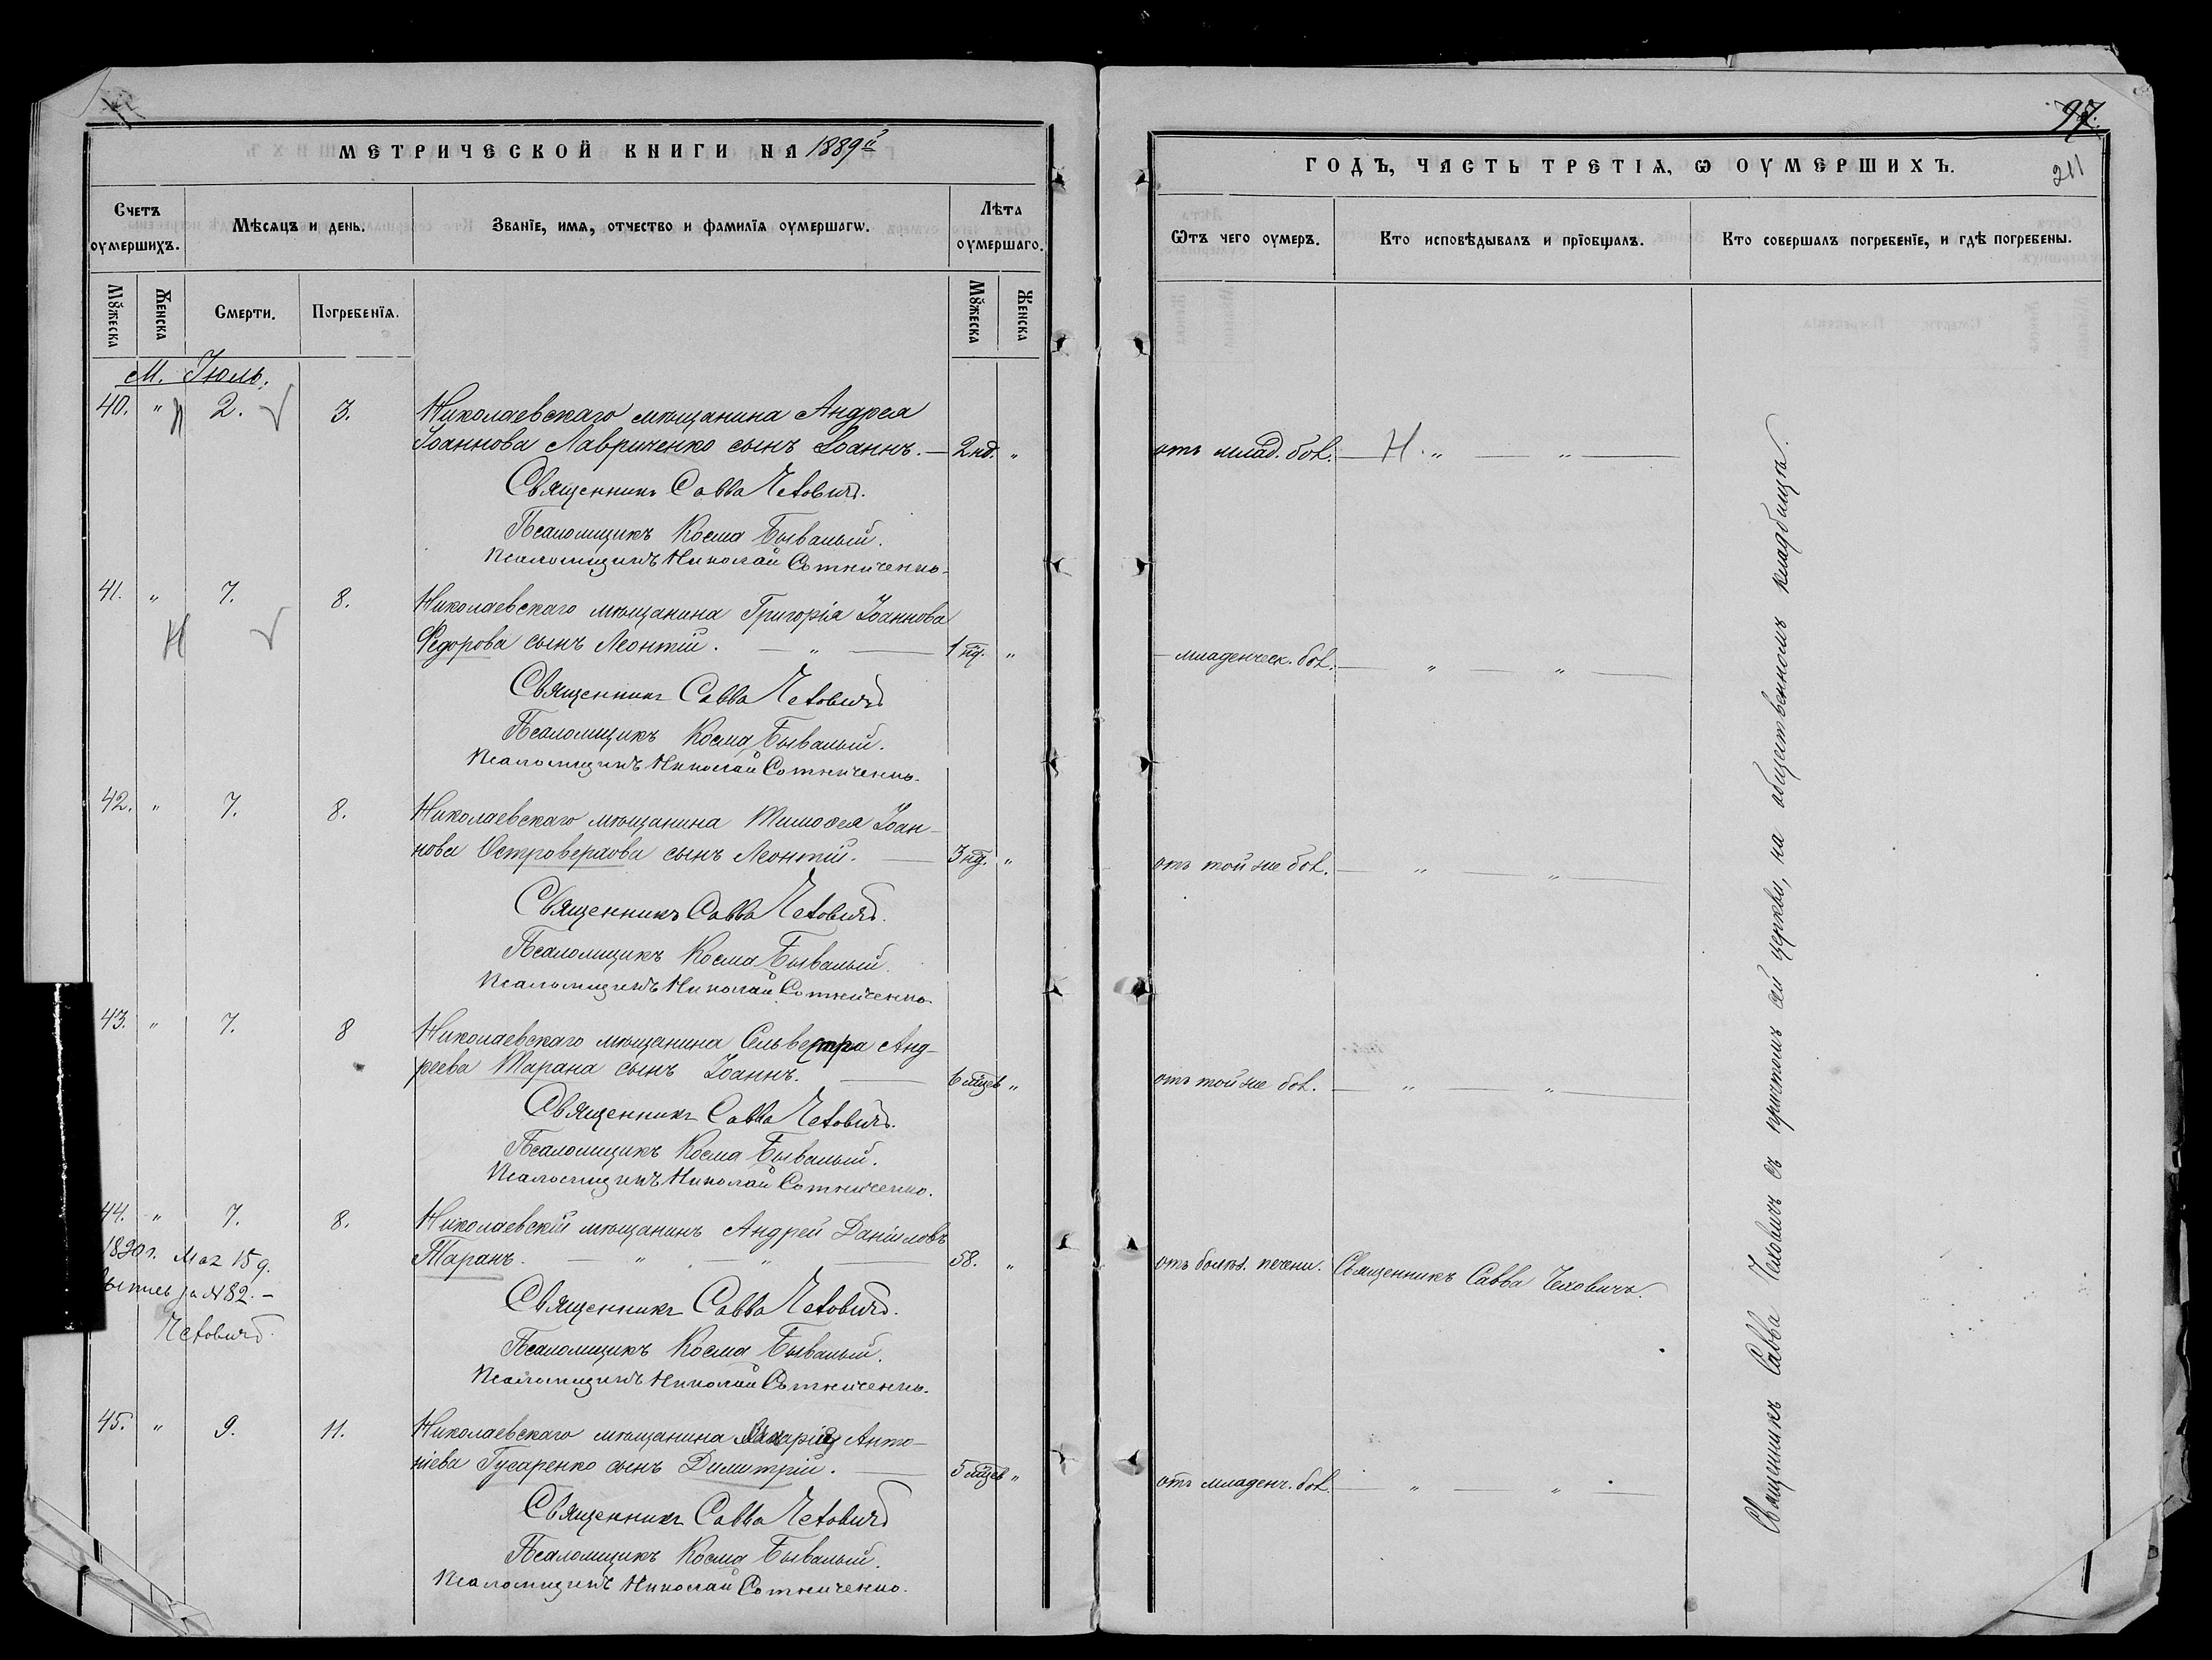 МЕТРИЧЕСКОЙ КНИГИ НА 1889й
Счетъ оумершихъ.
Мѣсяцъ и день.
Званїе, имя, отчество и фамилїя оумершагѡ.
Лѣта оумершаго.
Мꙋжеска
Женска
Смерти.
Погребенїя.
Мꙋжеска
Женска
М. Іюль.
40. " Н 2. 3. Николаевскаго мѣщанина Андрея
Іоаннова Лавриченко сынъ Іоаннъ. — 2 нд. "
Священникъ Савва Чеховичъ.
Псаломщикъ Косма Бывалый.
Псаломщикъ Николай Сотниченко.
41. " 7. 8. Николаевскаго мѣщанина Григорія Іоаннова
Н
Федорова сынъ Леонтій. — " — 1 нд. "
Священникъ Савва Чеховичъ
Псаломщикъ Косма Бывалый.
Псаломщикъ Николай Сотниченко.
42. " 7. 8. Николаевскаго мѣщанина Тимоѳея Іоан-
нова Островерхова сынъ Леонтій. — 3 нд. "
Священникъ Савва Чеховичъ.
Псаломщикъ Косма Бывалый.
Псаломщикъ Николай Сотниченко.
43. " 7. 8 Николаевскаго мѣщанина Сельвестра Анд-
реева Тарана сынъ Іоаннъ. — 6 мѣцев "
Священникъ Савва Чеховичъ.
Псаломщикъ Косма Бывалый.
Псаломщикъ Николай Сотниченко.
44. " 7. 8. Николаевскій мѣщанинъ Андрей Даніиловъ
Таранъ. — " — " — 58. "
1890 г. Мая 15 д.
за № 82. —
Чеховичъ.
Священникъ Савва Чеховичъ.
Псаломщикъ Косма Бывалый.
Псаломщикъ Николай Сотниченко.
45. " 9. 11. Николаевскаго мѣщанина Захарія Анто-
ніева Гусаренко сынъ Димитрій. — 5 мѣцев "
Священникъ Савва Чеховичъ
Псаломщикъ Косма Бывалый.
Псаломщикъ Николай Сотниченко.
97.
211
ГОДЪ, ЧАСТЬ ТРЕТІЯ, Ѡ ОУМЕРШИХЪ.
Ѿтъ чего оумеръ.
Кто исповѣдывалъ и прїобщалъ.
Кто совершалъ погребенїе, и гдѣ погребены.
отъ млад. бол. — Н. " — " —
— младенческ. бол. — " — " —
отъ той же бол. — " — " —
отъ той же бол. — " — " —
отъ болѣз. печени. Священникъ Савва Чеховичъ.
отъ младенч. бол. — " — " —
Священникъ Савва Чеховичъ съ причтомъ сей церкви, на общественномъ кладбищѣ.